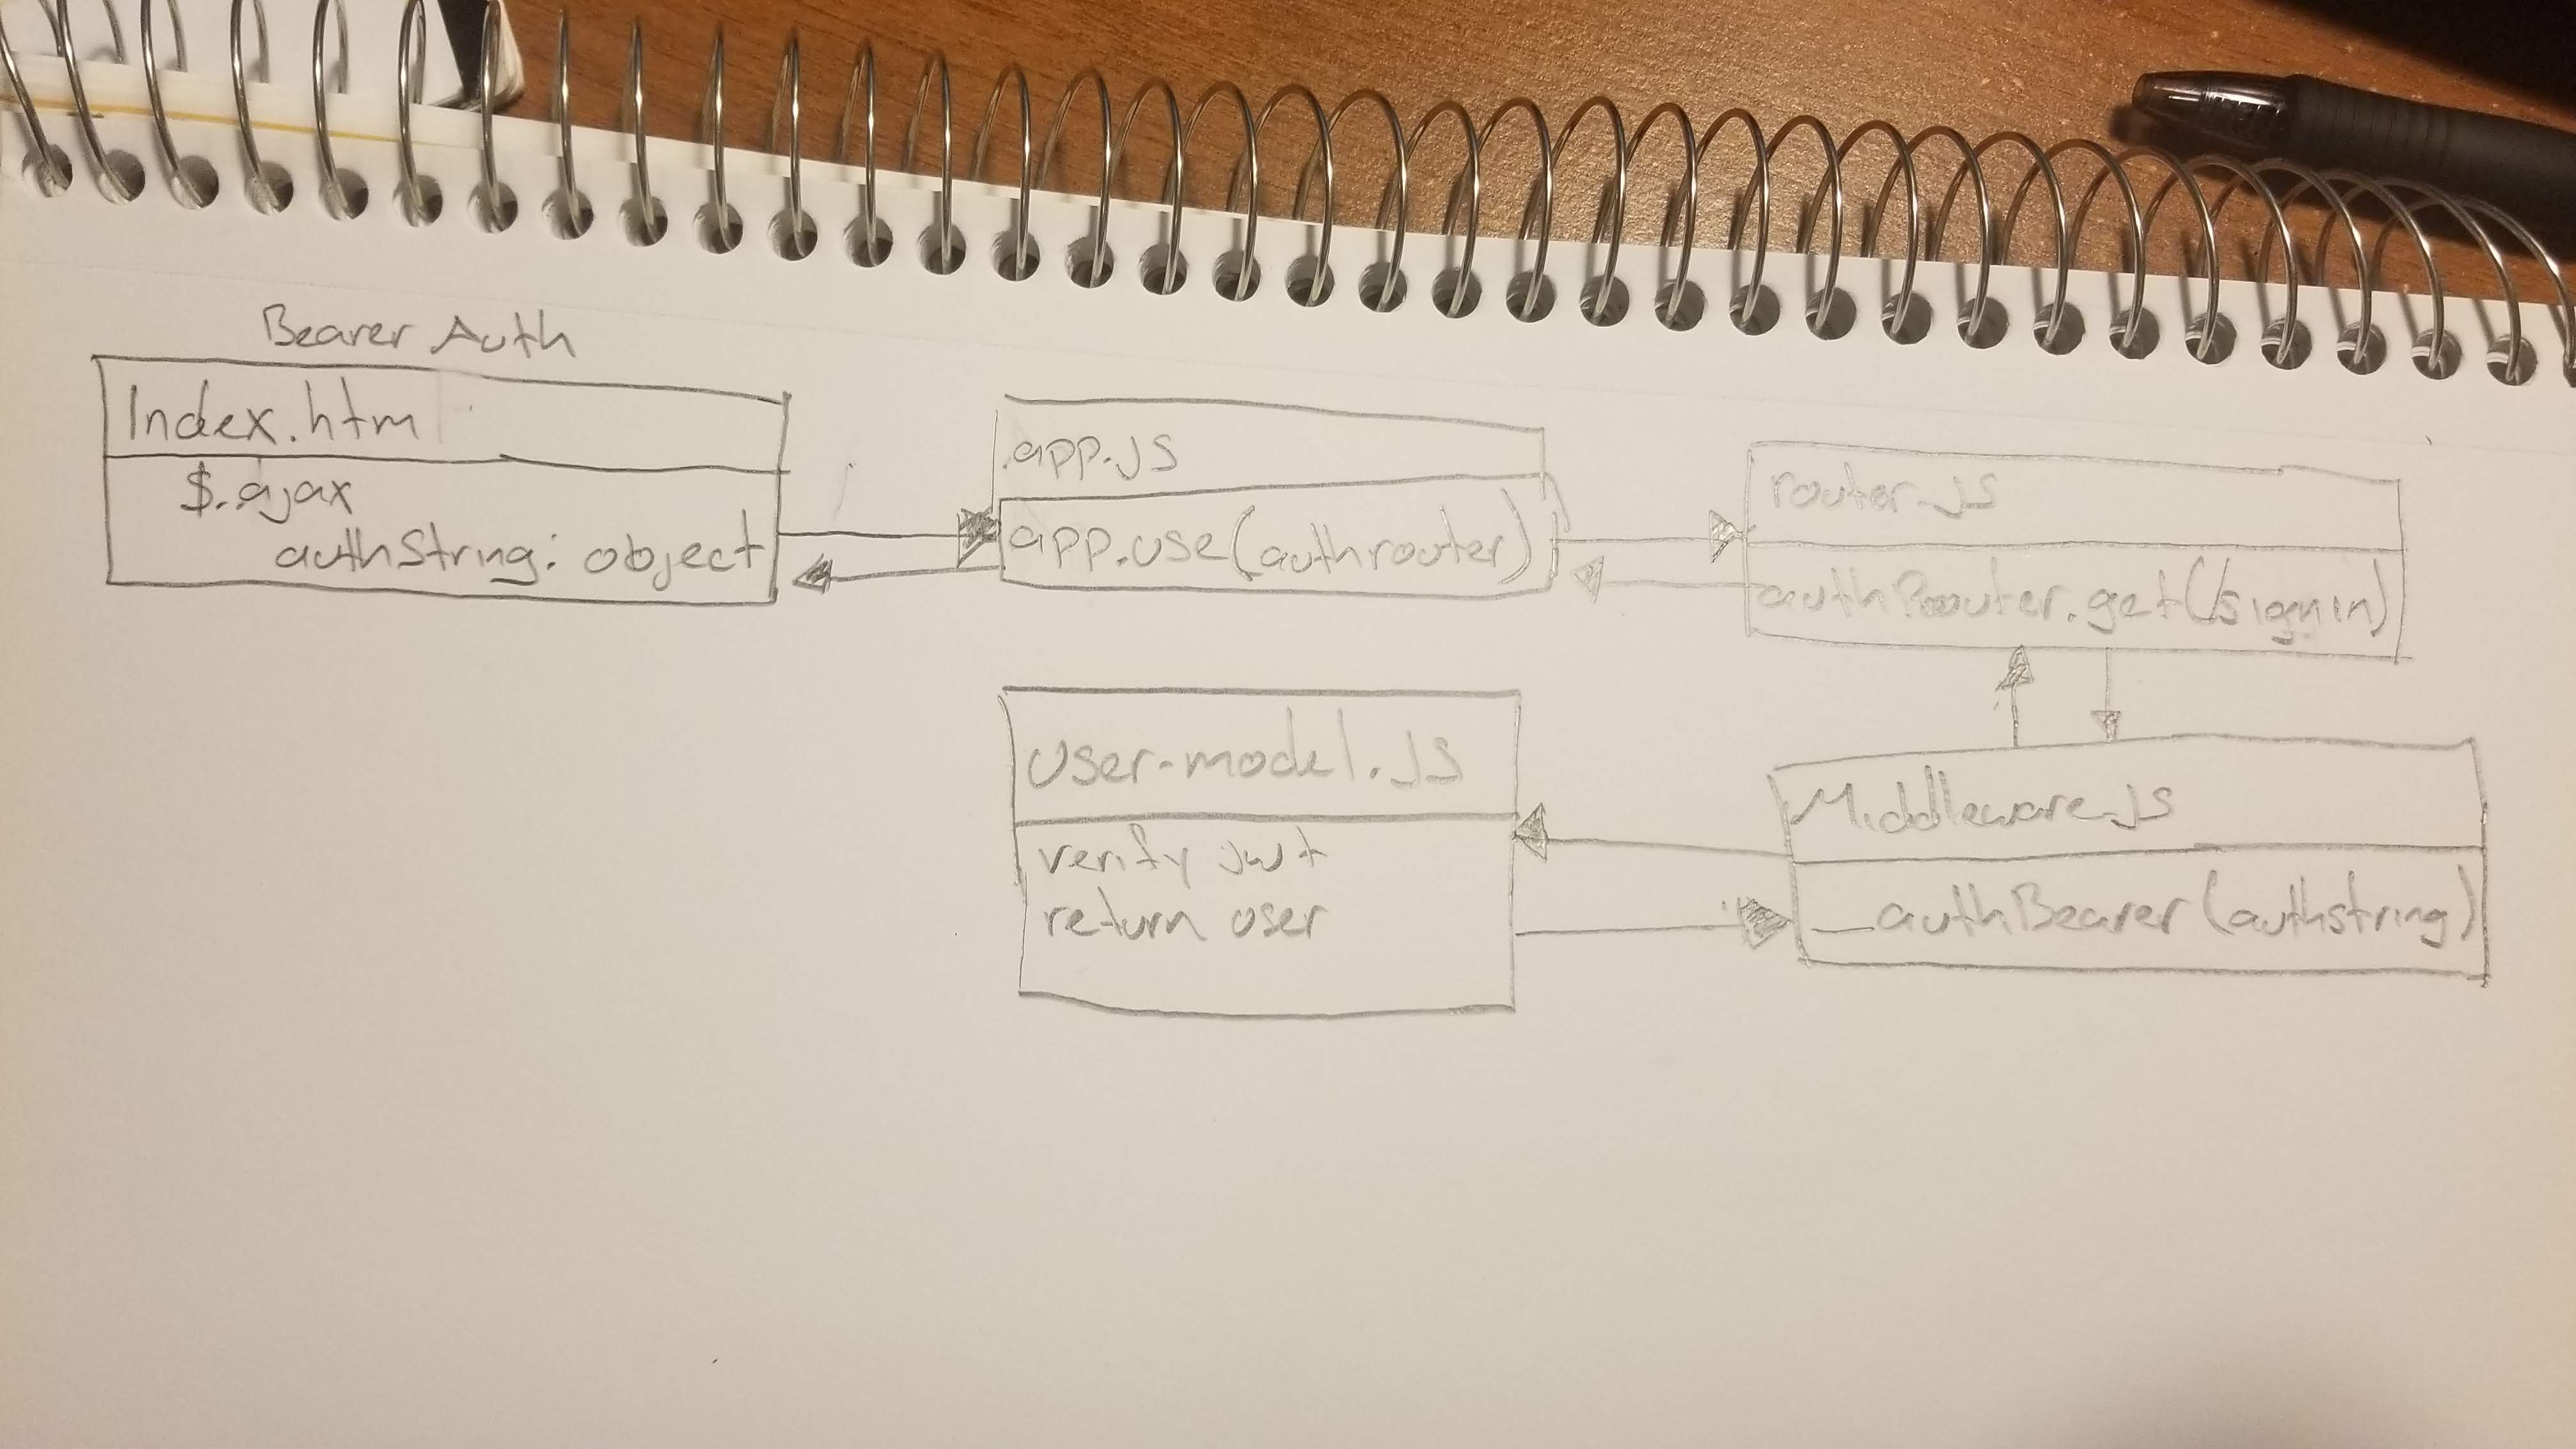 Bearer Auth
Index.html
$.ajax
authString: object
app.JS
app.use(authrouter)
router.JS
authRouter.get(/signin)
User-model.JS
verify jwt
return user
Middleware.JS
_authBearer(authstring)